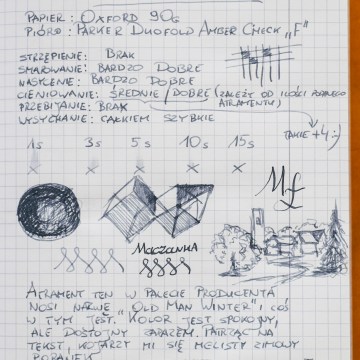 PAPIER : OXFORD 90g
PIÓRO : PARKER DUOFOLD AMBER CHECK „F"
STRZĘPIENIE: BRAK
SMAROWANIE: BARDZO DOBRE
NASYCENIE: BARDZO DOBRE
CIENIOWANIE: ŚREDNIE / DOBRE (ZALEŻY OD ILOŚCI PODANEGO ATRAMENTU)
PRZEBIJANIE: BRAK
WYSYCHANIE: CAŁKIEM SZYBKIE
TAKIE +4 :)
1s 3s 5s 10s 15s
MACZANKA
ATRAMENT TEN W PALECIE PRODUCENTA
NOSI NAZWĘ „OLD MAN WINTER", COŚ
W TYM JEST. KOLOR JEST SPOKOJNY,
ALE DOSTOJNY ZARAZEM. PATRZĄC NA
TEKST, KOJARZY MI SIĘ MGLISTY ZIMOWY
PORANEK